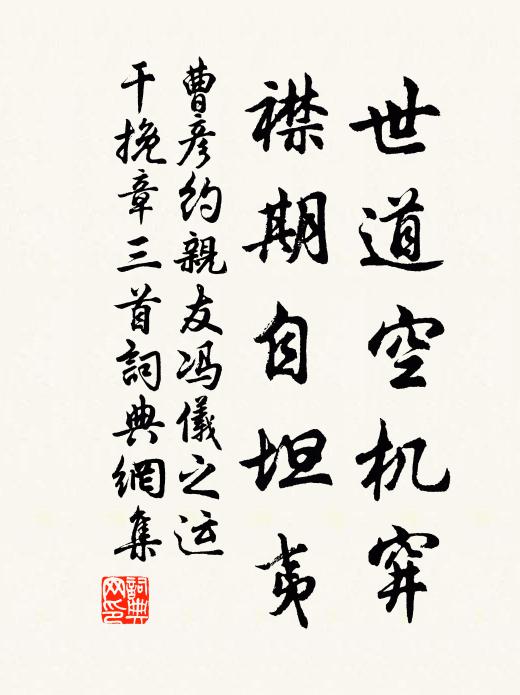 世道空机穽
襟期自坦夷
曹彦约親友冯儀之运
干挽章三首詞典網集
詞典网印